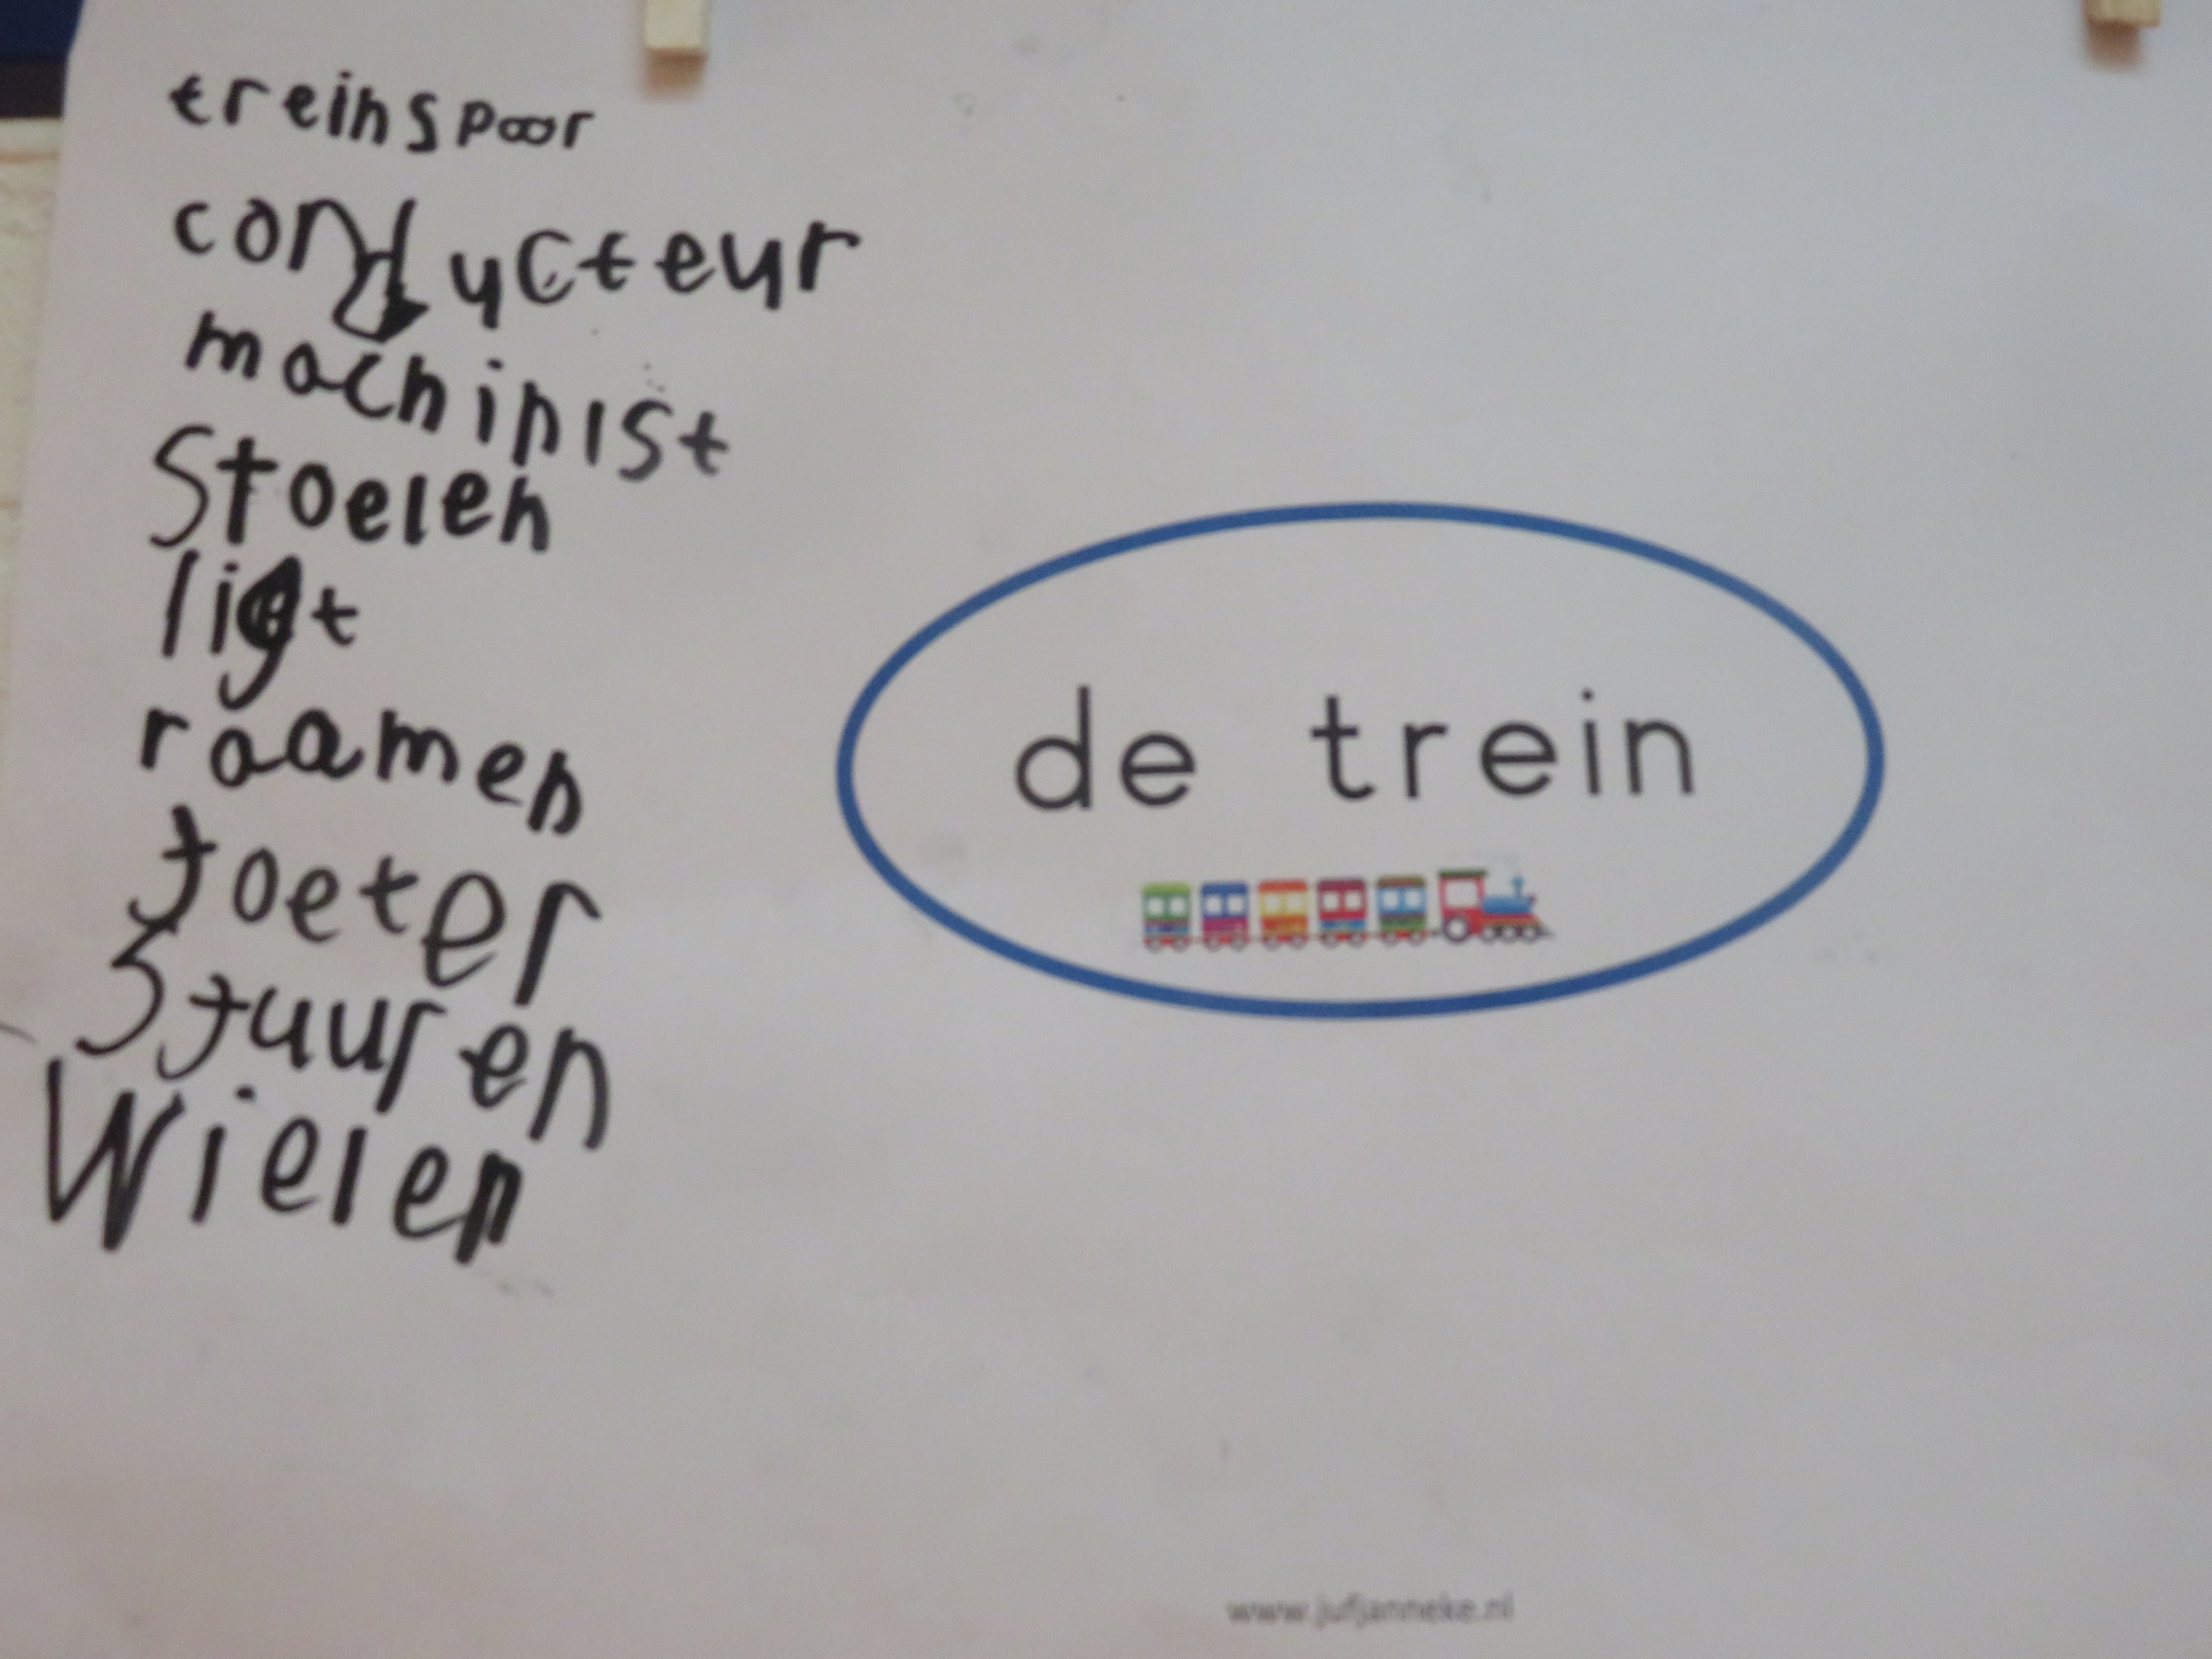 treinspoor
conducteur
machinist
Stoelen
ligt
raamen
toeter
Stuuren
Wielen
de trein
www.jufjanneke.nl